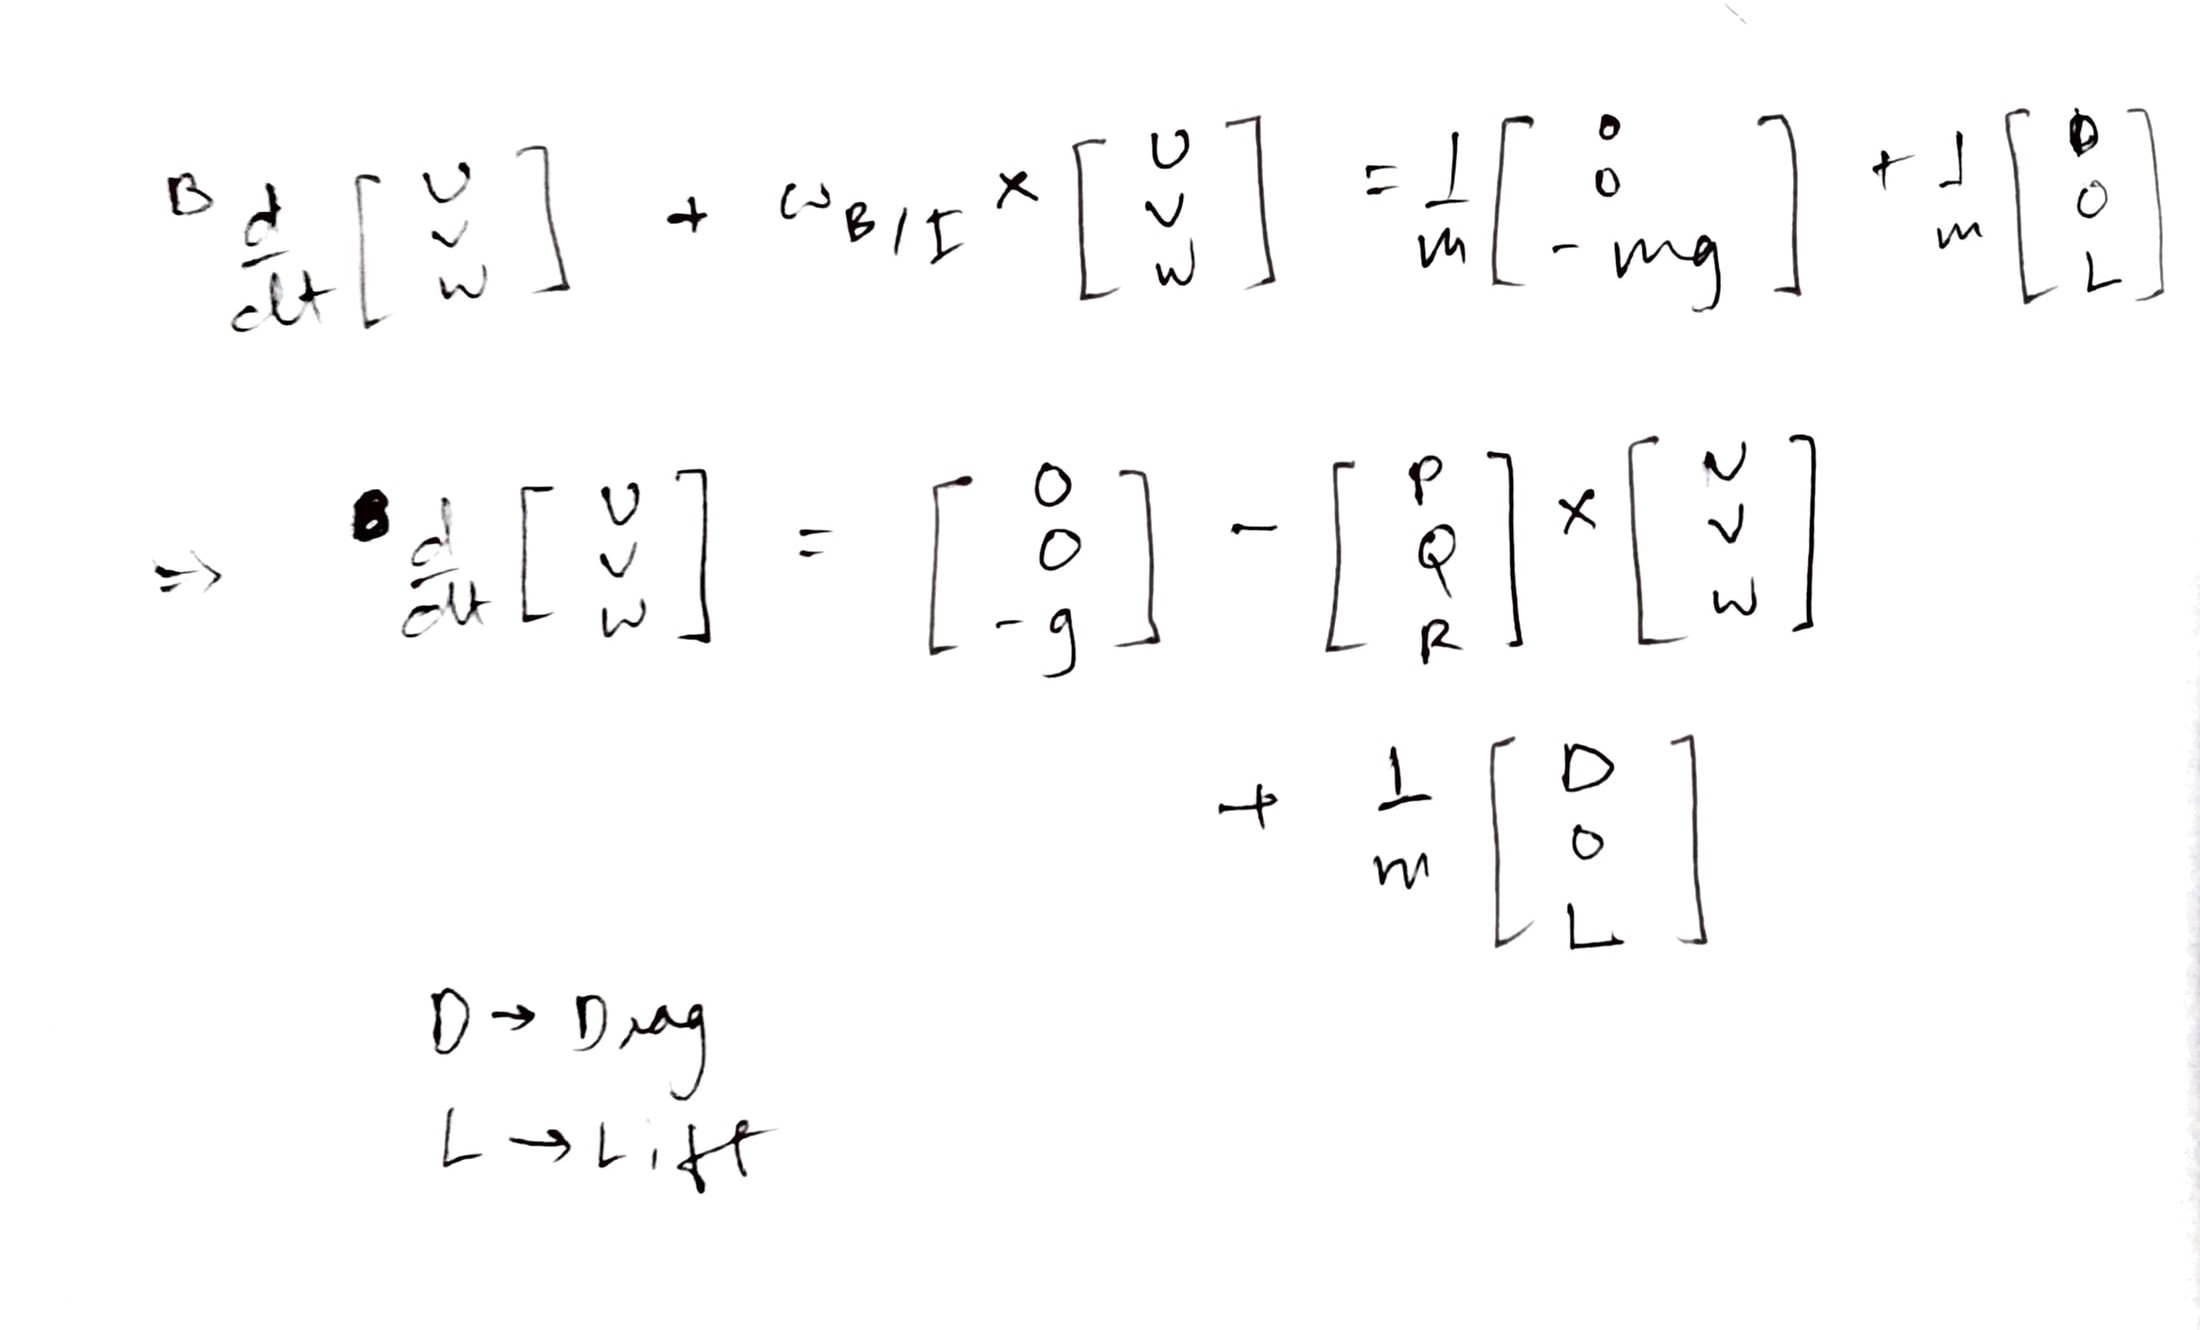 ᴮ d/dt [U V W] + ω_B/I × [U V W] = 1/m [0 0 -mg] + 1/m [D 0 L]
⇒ ᴮ d/dt [U V W] = [0 0 -g] - [P Q R] × [U V W]
+ 1/m [D 0 L]
D → Drag
L → Lift